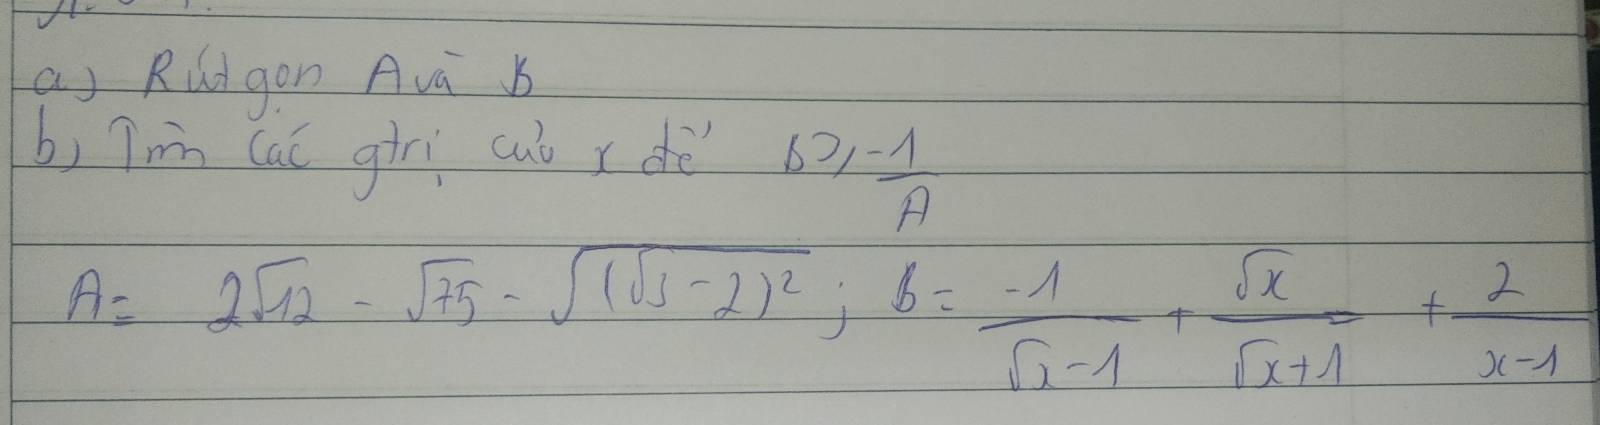 a) Rút gọn A và B
b) Tìm các gtrị của x để B ≥ -1/A
A = 2√12 - √75 - √((√3 - 2)²) ; B = -1/(√x - 1) + √x/(√x + 1) + 2/(x - 1)